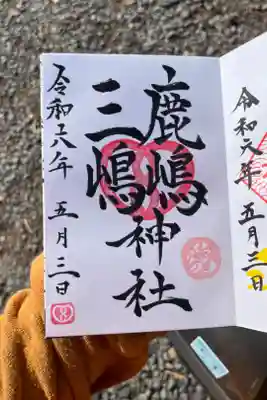 鹿嶋神社
三嶋
令和六年 五月三日
令和六年 五月三日